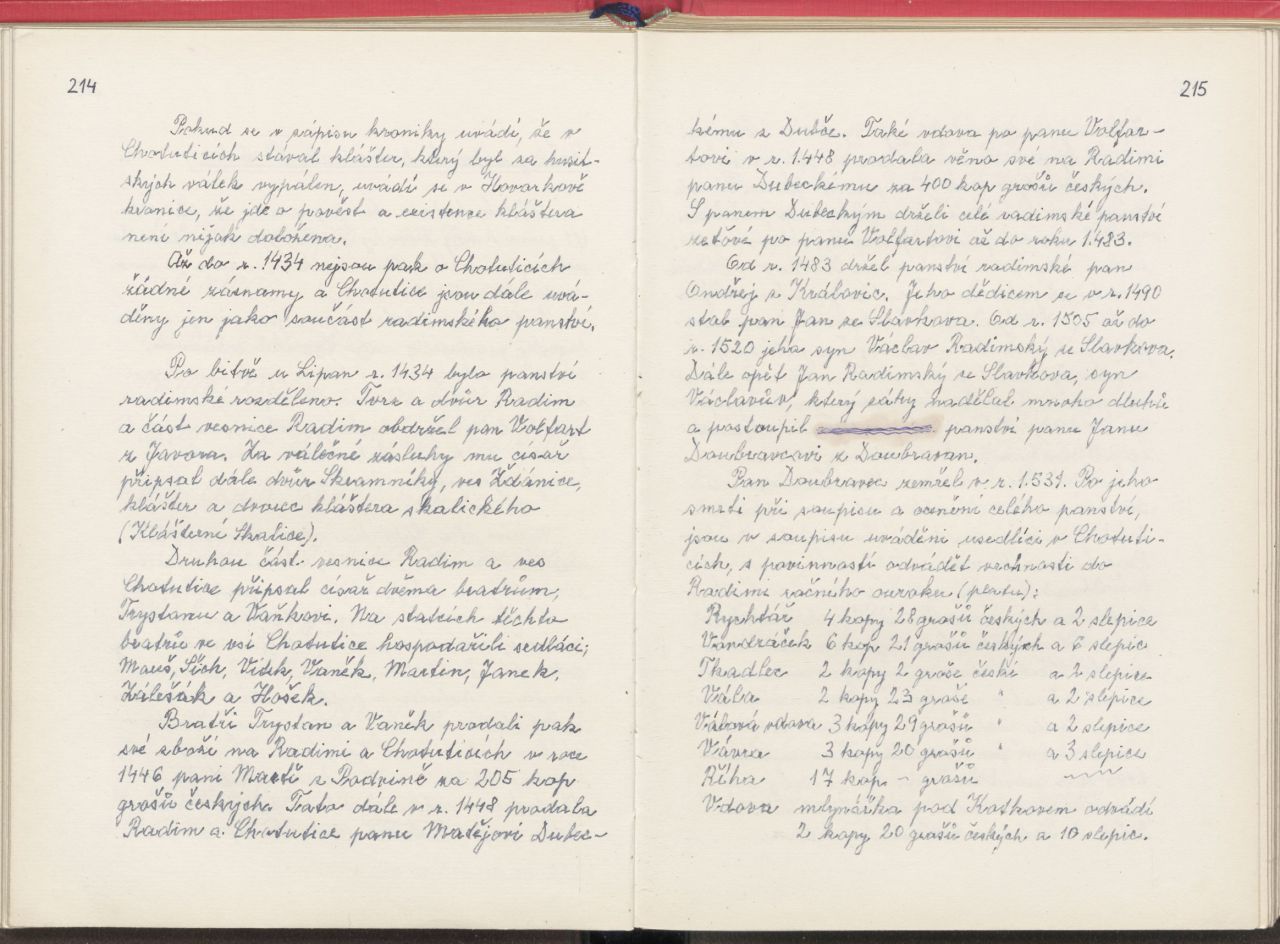 214
Pokud se v zápisu kroniky uvádí, že v
Chotuticích stával klášter, který byl za husit-
ských válek vypálen, uvádí se v Kovarkově
kronice, že jde o pověst a existence kláštera
není nijak doložena.
Až do r. 1434 nejsou pak o Chotuticích
žádné záznamy a Chotutice jsou dále uvá-
děny jen jako součást radimského panství.
Po bitvě u Lipan r. 1434 bylo panství
radimské rozděleno. Tvrz a dvůr Radim
a část vesnice Radim obdržel pan Volfart
z Javora. Za válečné zásluhy mu císař
připsal dále dvůr Skramníky, ves Ždánice,
klášter a dvorec kláštera skalického
(Klášterní Skalice).
Druhou část vesnice Radim a ves
Chotutice připsal císař dvěma bratrům,
Trystanu a Vaňkovi. Na statcích těchto
bratrů ve vsi Chotutice hospodařili sedláci;
Mauš, Sích, Vídek, Vaněk, Martin, Janek,
Zálešák a Hošek.
Bratři Trystan a Vaněk prodali pak
své zboží na Radimi a Chotuticích v roce
1446 paní Martě z Radvině za 205 kop
grošů českých. Tato dále v r. 1448 prodala
Radim a Chotutice panu Matějovi Dubec-
215
kému z Dubče. Také vdova po panu Volfar-
tovi v r. 1.448 prodala věno své na Radimi
panu Dubeckému za 400 kop grošů českých.
S panem Dubeckým drželi celé radimské panství
zeťové po panu Volfartovi až do roku 1.483.
Od r. 1483 držel panství radimské pan
Ondřej z Královic. Jeho dědicem se v r. 1490
stal pan Jan ze Slavkova. Od r. 1505 až do
r. 1520 jeho syn Václav Radimský ze Slavkova.
Dále opět Jan Radimský ze Slavkova, syn
Václavův, který záhy nadělal mnoho dluhů
a postoupil panství panu Janu
Doubravcovi z Doubravan.
Pan Doubravec zemřel v r. 1.531. Po jeho
smrti při soupisu a ocenění celého panství,
jsou v soupisu uváděni usedlíci v Chotuti-
cích, s povinností odvádět vrchnosti do
Radimi ročního ouroku (peněz):
Rychtář 4 kopy 28 grošů českých a 2 slepice
Vandráček 6 kop 21 grošů českých a 6 slepic
Tkadlec 2 kopy 2 groše české a 2 slepice
Vála 2 kopy 23 groše " a 2 slepice
Válová vdova 3 kopy 29 grošů " a 2 slepice
Vávra 3 kopy 20 grošů " a 3 slepice
Říha 17 kop - grošů
Vdova mlynářka pod Kotkovem odvádí
2 kopy 20 grošů českých a 10 slepic.